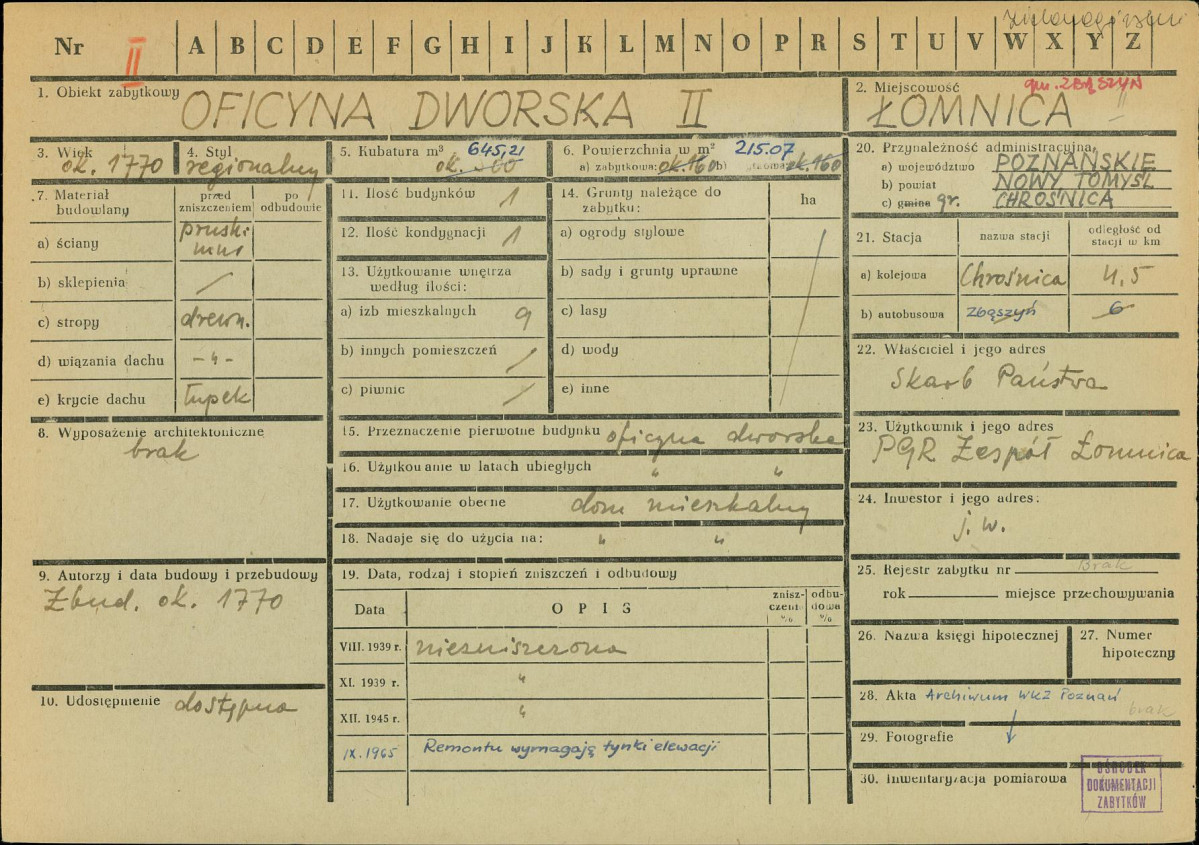 zielonogórskie
Nr II A B C D E F G H I J K L M N O P R S T U V W X Y Z
1. Obiekt zabytkowy OFICYNA DWORSKA II
2. Miejscowość gm. ZBĄSZYŃ
ŁOMNICA
3. Wiek
ok. 1770
4. Styl
regionalny
5. Kubatura m³ 645,21
6. Powierzchnia w m² 215.07
a) zabytkowa: ok. 160 b) ok. 160
7. Materiał budowlany
przed zniszczeniem
po odbudowie
a) ściany pruski mur
b) sklepienia /
c) stropy drewn.
d) wiązania dachu -"-
e) krycie dachu łupek
8. Wyposażenie architektoniczne
brak
9. Autorzy i data budowy i przebudowy
Zbud. ok. 1770
10. Udostępnienie dostępna
11. Ilość budynków 1
12. Ilość kondygnacji 1
13. Użytkowanie wnętrza
według ilości:
a) izb mieszkalnych 9
b) innych pomieszczeń /
c) piwnic /
14. Grunty należące do
zabytku:
ha
a) ogrody stylowe
b) sady i grunty uprawne
c) lasy
d) wody
e) inne
15. Przeznaczenie pierwotne budynku oficyna dworska
16. Użytkowanie w latach ubiegłych " "
17. Użytkowanie obecne dom mieszkalny
18. Nadaje się do użycia na: " "
19. Data, rodzaj i stopień zniszczeń i odbudowy
Data
OPIS
znisz-
czenia
%
odbu-
dowa
%
VIII. 1939 r. niezniszczona
XI. 1939 r. "
XII. 1945 r. "
IX.1965 Remontu wymagają tynki elewacji
20. Przynależność administracyjna
a) województwo POZNAŃSKIE
b) powiat NOWY TOMYŚL
c) gmina gr. CHROŚNICA
21. Stacja
nazwa stacji
odległość od
stacji w km
a) kolejowa Chrośnica 4,5
b) autobusowa Zbąszyń 6
22. Właściciel i jego adres
Skarb Państwa
23. Użytkownik i jego adres
PGR Zespół Łomnica
24. Inwestor i jego adres:
j. w.
25. Rejestr zabytku nr Brak
rok miejsce przechowywania
26. Nazwa księgi hipotecznej
27. Numer
hipoteczny
28. Akta Archiwum WKZ Poznań
brak
29. Fotografie
30. Inwentaryzacja pomiarowa
OŚRODEK
DOKUMENTACJI
ZABYTKÓW